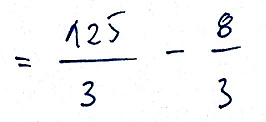 = 125/3 - 8/3